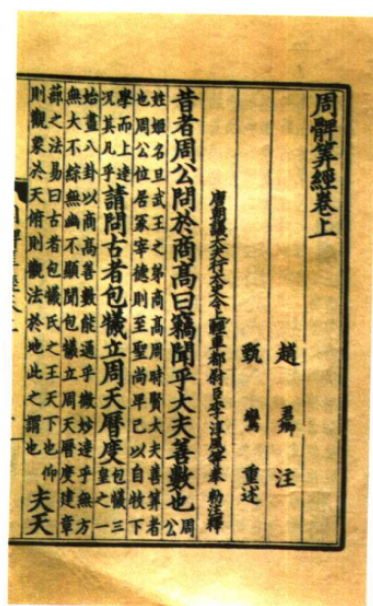 周髀算經卷上
趙君卿注
甄鸞重述
唐朝議大夫行太史令上輕車都尉臣李淳風等奉勑注釋
昔者周公問於商高曰竊聞乎大夫善數也周公
姓姬名旦武王之弟商高周時賢大夫善算者
也周公位居冢宰德則至聖尚卑己以自牧下
學而上達況其凡乎請問古者包犧立周天曆度包犧三皇之一
始畫八卦以商高善數能通乎微妙達乎無方
無大不綜無幽不顯聞包犧立周天曆度建章
蔀之法易曰古者包犧氏之王天下也仰
則觀象於天俯則觀法於地此之謂也夫天